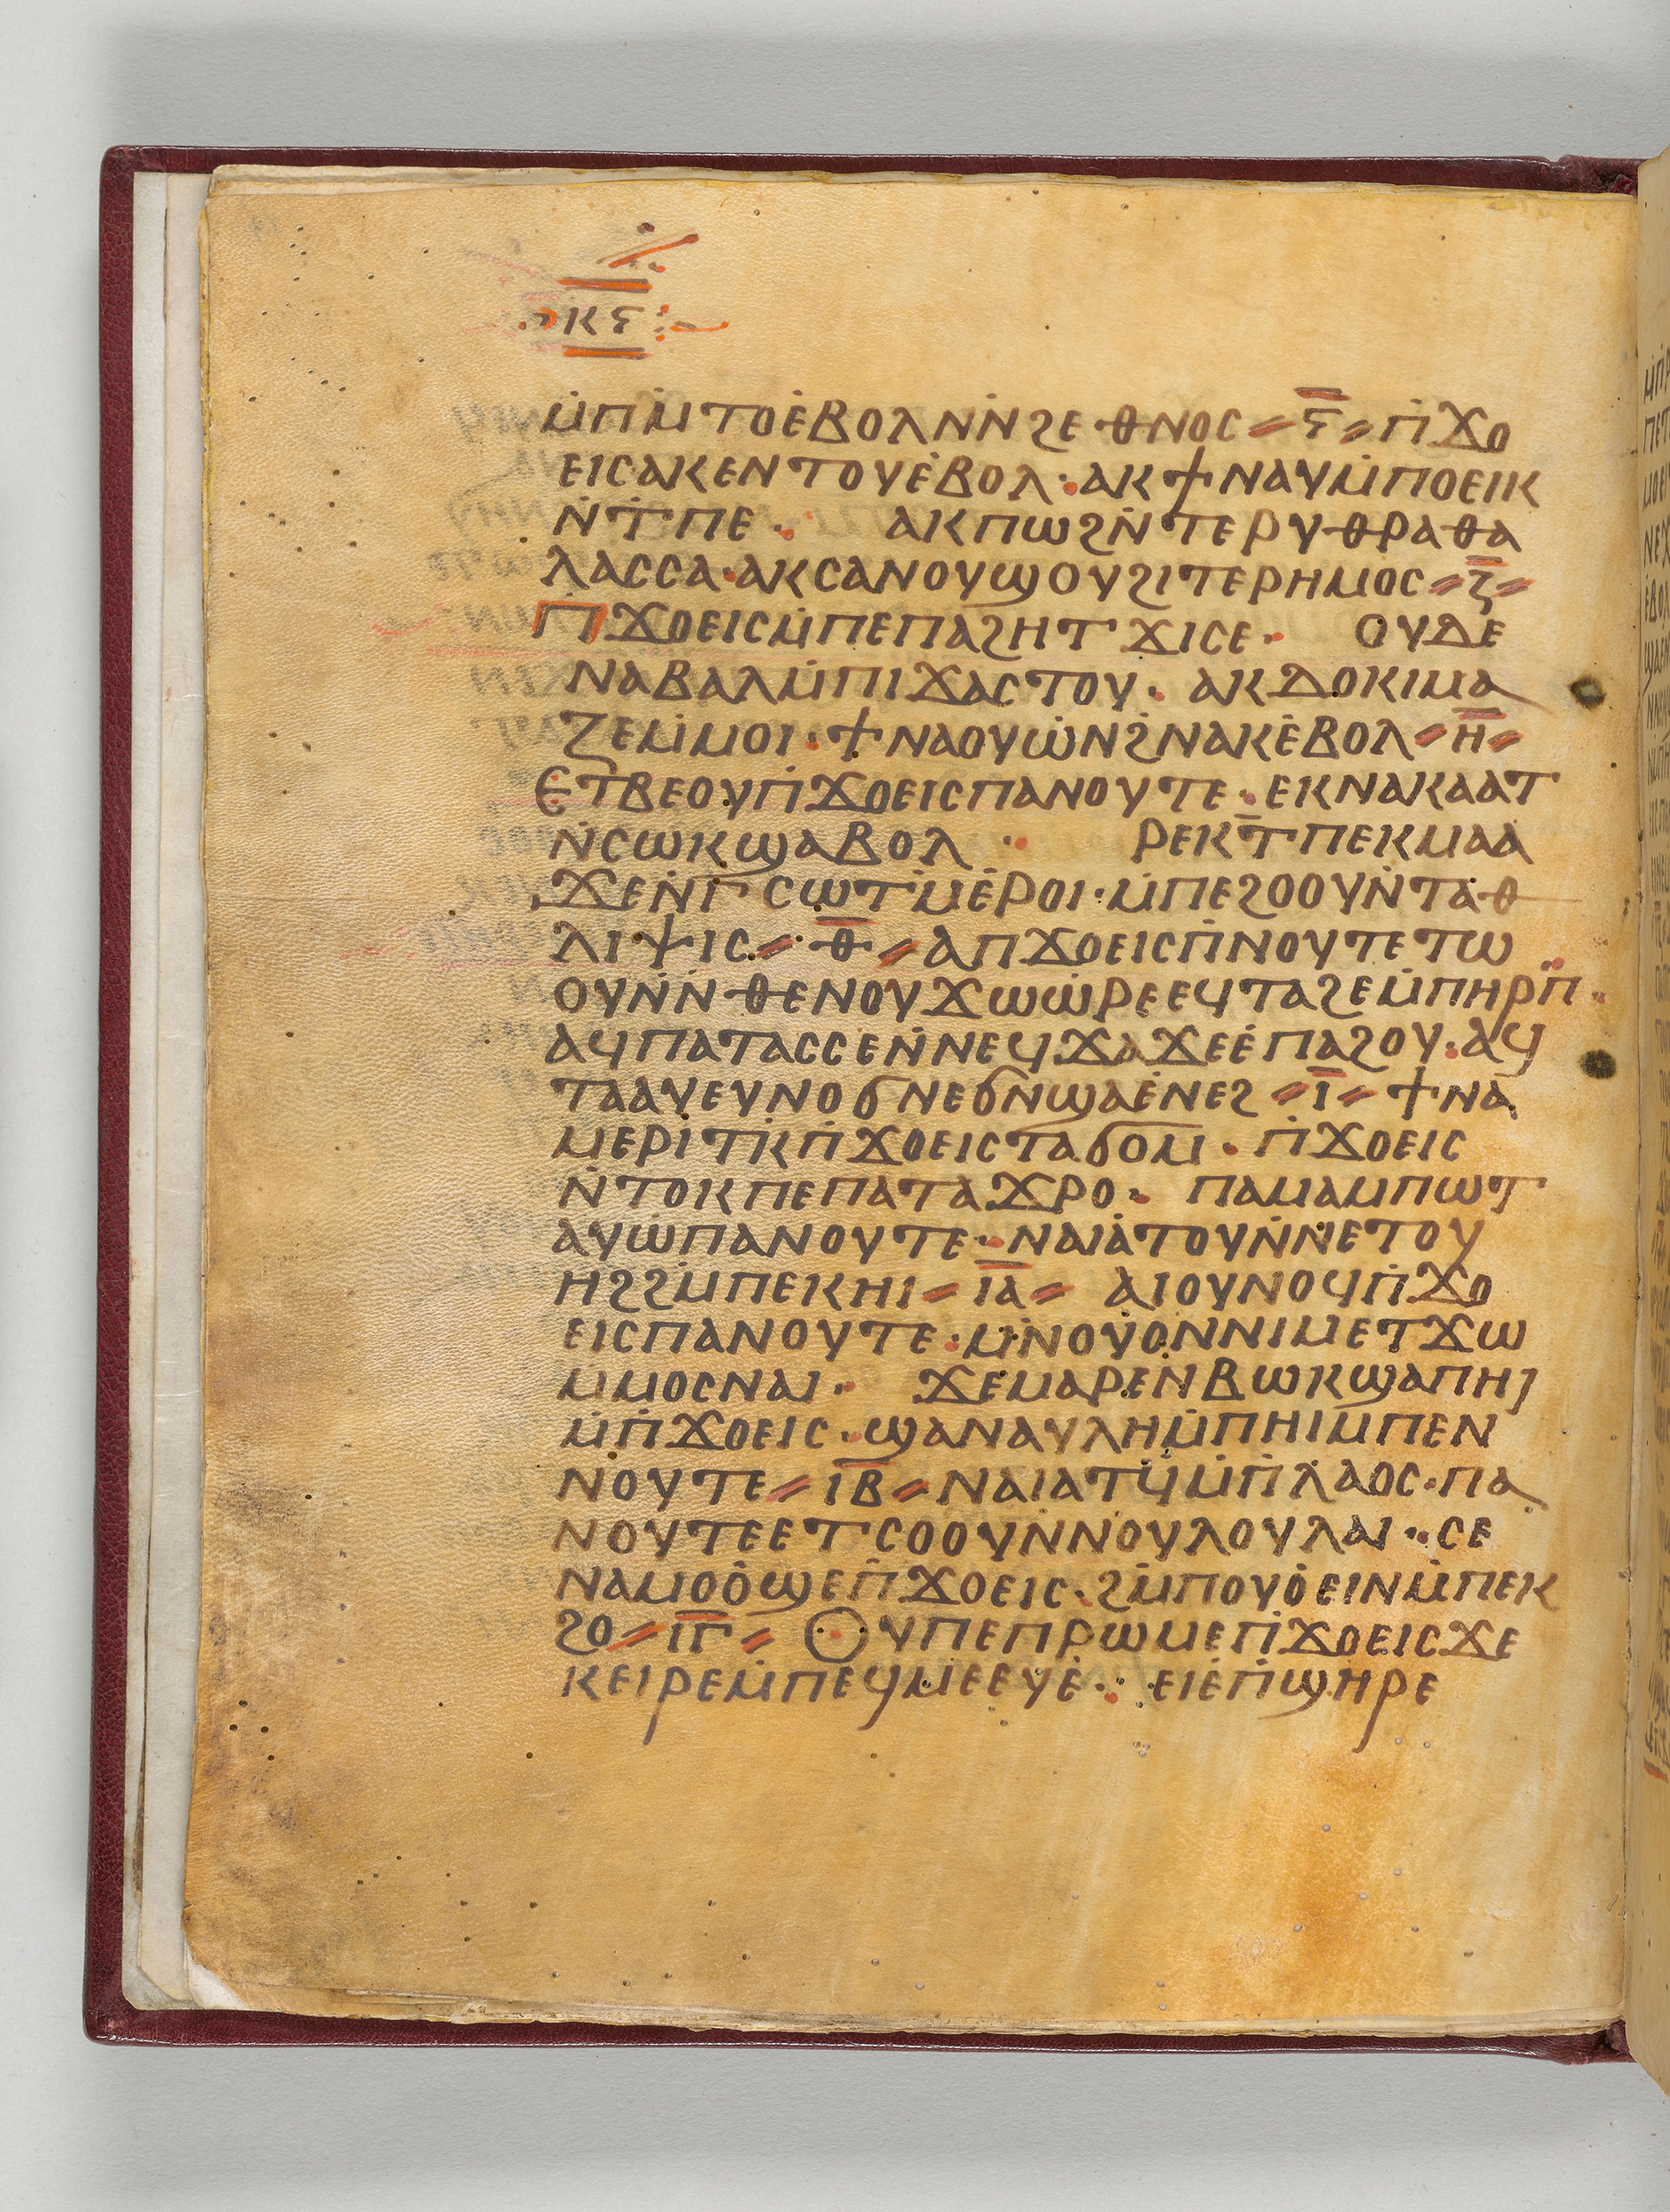 ⲕⲋ
ⲙ̇ⲡⲙ̇ⲧⲟⲉ̇ⲃⲟⲗⲛ̇ⲛ̇ϩⲉⲑⲛⲟⲥ⸗ⲋ̅⸗ⲡ̇ϫⲟ
ⲉⲓⲥⲁⲕⲉⲛⲧⲟⲩⲉ̇ⲃⲟⲗ·ⲁⲕϯⲛⲁⲩⲙ̇ⲡⲟⲉⲓⲕ
ⲛ̇ⲧ̇ⲡⲉ· ⲁⲕⲡⲱϩⲛ̇ⲧⲉⲣⲩⲑⲣⲁⲑⲁ
ⲗⲁⲥⲥⲁ·ⲁⲕⲥⲁⲛⲟⲩϣⲟⲩϩⲓⲧⲉⲣⲏⲙⲟⲥ⸗ⲍ̅⸗
ⲡ̇ϫⲟⲉⲓⲥⲙ̇ⲡⲉⲡⲁϩⲏⲧϫⲓⲥⲉ· ⲟⲩⲇⲉ
ⲛⲁⲃⲁⲗⲙ̇ⲡⲓϫⲁⲥⲧⲟⲩ· ⲁⲕⲇⲟⲕⲓⲙⲁ
ⲍⲉⲙ̇ⲙⲟⲓ·ϯⲛⲁⲟⲩⲱ̇ⲛϩ̇ⲛⲁⲕⲉ̇ⲃⲟⲗ⸗ⲏ̅⸗
ⲉⲧⲃⲉⲟⲩⲡ̇ϫⲟⲉⲓⲥⲡⲁⲛⲟⲩⲧⲉ·ⲉⲕⲛⲁⲕⲁⲁⲧ
ⲛ̇ⲥⲱⲕϣⲁⲃⲟⲗ· ⲣⲉⲕⲧ̅ⲡⲉⲕⲙⲁⲁ
ϫⲉⲛ̇ⲅ̇ⲥⲱⲧⲙ̇ⲉ̇ⲣⲟⲓ·ⲙ̇ⲡⲉϩⲟⲟⲩⲛ̇ⲧⲁⲑ
ⲗⲓⲯⲓⲥ⸗ⲑ̅⸗ⲁⲡϫⲟⲉⲓⲥⲡ̇ⲛⲟⲩⲧⲉⲧⲱ
ⲟⲩⲛ̇ⲛ̇ⲑⲉⲛⲟⲩϫⲱⲱ̇ⲣⲉⲉϥⲧⲁϩⲉⲙ̇ⲡⲏⲣⲡ̇·
ⲁϥⲡⲁⲧⲁⲥⲥⲉⲛ̇ⲛⲉϥϫⲁϫⲉⲉ̇ⲡⲁϩⲟⲩ·ⲁϥ
ⲧⲁⲁⲩⲉⲩⲛⲟϭⲛⲉϭⲛϣⲁⲉ̇ⲛⲉϩ⸗ⲓ̅⸗ϯⲛⲁ
ⲙⲉⲣⲓⲧⲕ̇ⲡ̇ϫⲟⲉⲓⲥⲧⲁϭⲟⲙ·ⲡ̇ϫⲟⲉⲓⲥ
ⲛ̇ⲧⲟⲕⲡⲉⲡⲁⲧⲁϫⲣⲟ· ⲡⲁⲙⲁⲙⲡⲱⲧ
ⲁⲩⲱ̇ⲡⲁⲛⲟⲩⲧⲉ·ⲛⲁⲓⲁ̇ⲧⲟⲩⲛ̇ⲛⲉⲧⲟⲩ
ⲏϩϩⲙ̇ⲡⲉⲕⲏⲓ⸗ⲓ̅ⲁ̅⸗ ⲁⲓⲟⲩⲛⲟϥⲡ̇ϫⲟ
ⲉⲓⲥⲡⲁⲛⲟⲩⲧⲉ·ⲙⲛ̇ⲟⲩⲟⲛⲛⲓⲙⲉⲧϫⲱ
ⲙⲙⲟⲥⲛⲁⲓ· ϫⲉⲙⲁⲣⲉⲛ̇ⲃⲱⲕϣⲁⲡⲏⲓ
ⲙ̇ⲡ̇ϫⲟⲉⲓⲥ·ϣⲁⲛⲁⲩⲗⲏⲙ̇ⲡⲏⲓⲙⲡⲉⲛ
ⲛⲟⲩⲧⲉ⸗ⲓ̅ⲃ̅⸗ⲛⲁⲓⲁⲧϥ̇ⲙ̇ⲡ̇ⲗⲁⲟⲥ·ⲡⲁ
ⲛⲟⲩⲧⲉⲉⲧⲥⲟⲟⲩⲛ̇ⲛ̇ⲟⲩⲗⲟⲩⲗⲁⲓ·ⲥⲉ
ⲛⲁⲙⲟⲟ̇ϣⲉⲡ̇ϫⲟⲉⲓⲥ·ϩⲙ̇ⲡⲟⲩⲟ̇ⲉⲓⲛⲙ̇ⲡⲉⲕ
ϩⲟ⸗ⲓ̅ⲅ̅⸗ ⲟⲩⲡⲉⲡⲣⲱⲙⲉⲡ̇ϫⲟⲉⲓⲥϫⲉ
ⲕⲉⲓⲣⲉⲙ̇ⲡⲉϥⲙⲉⲉⲩⲉ̇· ⲉⲓⲉ̇ⲡ̇ϣⲏⲣⲉ